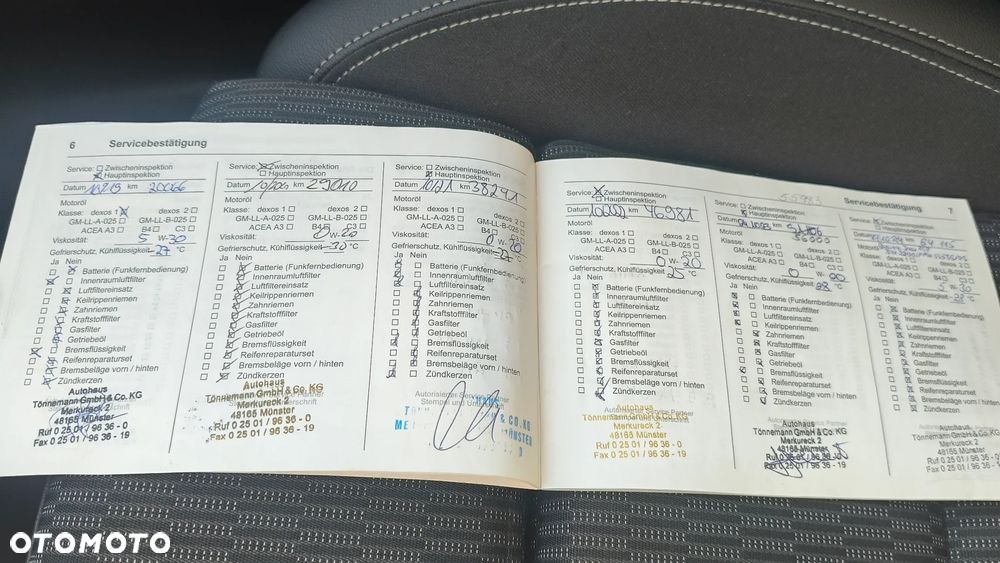 6 Servicebestätigung
Service: Zwischeninspektion
Hauptinspektion
Datum km 20066
Motoröl
Klasse: dexos 1 dexos 2
GM-LL-A-025 GM-LL-B-025
ACEA A3 B4 C3
Viskosität: 5 W- 30
Gefrierschutz, Kühlflüssigkeit -27 °C
Ja Nein
Batterie (Funkfernbedienung)
Innenraumluftfilter
Luftfiltereinsatz
Keilrippenriemen
Zahnriemen
Kraftstofffilter
Gasfilter
Getriebeöl
Bremsflüssigkeit
Reifenreparaturset
Bremsbeläge vorn / hinten
Zündkerzen
Autohaus
Tönnemann GmbH & Co. KG
Merkureck 2
48165 Münster
Ruf 0 25 01 / 96 36 - 0
Fax 0 25 01 / 96 36 - 19
Service: Zwischeninspektion
Hauptinspektion
Datum km 29010
Motoröl
Klasse: dexos 1 dexos 2
GM-LL-A-025 GM-LL-B-025
ACEA A3 B4 C3
Viskosität: 0 W- 20
Gefrierschutz, Kühlflüssigkeit -30 °C
Ja Nein
Batterie (Funkfernbedienung)
Innenraumluftfilter
Luftfiltereinsatz
Keilrippenriemen
Zahnriemen
Kraftstofffilter
Gasfilter
Getriebeöl
Bremsflüssigkeit
Reifenreparaturset
Bremsbeläge vorn / hinten
Zündkerzen
Autohaus
Tönnemann GmbH & Co. KG
Merkureck 2
48165 Münster
Ruf 0 25 01 / 96 36 - 0
Fax 0 25 01 / 96 36 - 19
Service: Zwischeninspektion
Hauptinspektion
Datum 10/21 km 38241
Motoröl
Klasse: dexos 1 dexos 2
GM-LL-A-025 GM-LL-B-025
ACEA A3 B4 C3
Viskosität: 0 W- 20
Gefrierschutz, Kühlflüssigkeit °C
Ja Nein
Batterie (Funkfernbedienung)
Innenraumluftfilter
Luftfiltereinsatz
Keilrippenriemen
Zahnriemen
Kraftstofffilter
Gasfilter
Getriebeöl
Bremsflüssigkeit
Reifenreparaturset
Bremsbeläge vorn / hinten
Zündkerzen
Autorisierter Service Partner
Stempel und
Service: Zwischeninspektion
Hauptinspektion
Datum km 46981
Motoröl
Klasse: dexos 1 dexos 2
GM-LL-A-025 GM-LL-B-025
ACEA A3 B4 C3
Viskosität: 0 W- 20
Gefrierschutz, Kühlflüssigkeit 25 °C
Ja Nein
Batterie (Funkfernbedienung)
Innenraumluftfilter
Luftfiltereinsatz
Keilrippenriemen
Zahnriemen
Kraftstofffilter
Gasfilter
Getriebeöl
Bremsflüssigkeit
Reifenreparaturset
Bremsbeläge vorn / hinten
Zündkerzen
Autohaus
Tönnemann GmbH & Co. KG
Merkureck 2
48165 Münster
Ruf 0 25 01 / 96 36 - 0
Fax 0 25 01 / 96 36 - 19
Service: Zwischeninspektion
Hauptinspektion
Datum km
Motoröl
Klasse: dexos 1 dexos 2
GM-LL-A-025 GM-LL-B-025
ACEA A3 B4 C3
Viskosität: 0 W- 20
Gefrierschutz, Kühlflüssigkeit 28 °C
Ja Nein
Batterie (Funkfernbedienung)
Innenraumluftfilter
Luftfiltereinsatz
Keilrippenriemen
Zahnriemen
Kraftstofffilter
Gasfilter
Getriebeöl
Bremsflüssigkeit
Reifenreparaturset
Bremsbeläge vorn / hinten
Zündkerzen
Autohaus
Tönnemann GmbH & Co. KG
Merkureck 2
48165 Münster
Ruf 0 25 01 / 96 36 - 0
Fax 0 25 01 / 96 36 - 19
Servicebestätigung 7
Service: Zwischeninspektion
Hauptinspektion
Datum km 64 115
Motoröl
Klasse: dexos 1
GM-LL-A-025 GM-LL-B-025
ACEA A3 B4 C3
Viskosität: 5 W- 30
Gefrierschutz, Kühlflüssigkeit -28 °C
Ja Nein
Batterie (Funkfernbedienung)
Innenraumluftfilter
Luftfiltereinsatz
Keilrippenriemen
Zahnriemen
Kraftstofffilter
Gasfilter
Getriebeöl
Bremsflüssigkeit
Reifenreparaturset
Bremsbeläge vorn / hinten
Zündkerzen
Autohaus
Tönnemann GmbH & Co. KG
Merkureck 2
48165 Münster
Ruf 0 25 01 / 96 36 - 0
Fax 0 25 01 / 96 36 - 19
OTOMOTO